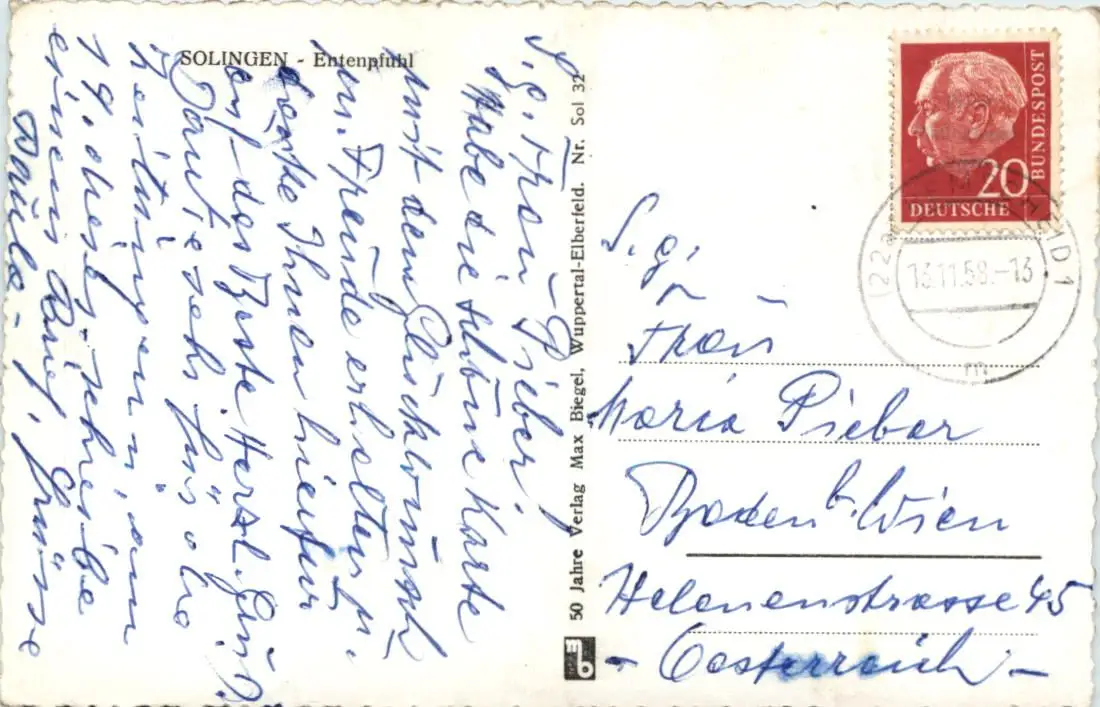 SOLINGEN - Entenpfuhl
S. g. Frau Pieber!
Habe die schöne Karte
mit dem Glückwunsch
u. Freude erhalten u.
danke Ihnen hiefür
auf das Beste. Herzl.
Dank sehr für die
Zeitungen u. am
19. ds. schreibe
einen Brief. Grüsse
Paula -
50 Jahre Verlag Max Biegel, Wuppertal-Elberfeld. Nr. Sol 32
mb
BUNDESPOST
20
DEUTSCHE
(22a)
13.11.58.-13
m
S. g.
Frau
Maria Pieber
Baden b. Wien
Helenenstrasse 45
- Oesterreich -